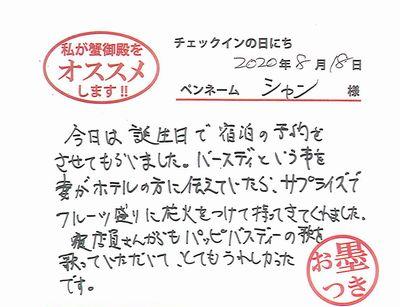 私が蟹御殿を
オススメ
します!!
チェックインの日にち
2020年8月18日
ペンネーム シャン 様
今日は誕生日で宿泊の予約を
させてもらいました。バースディという事を
妻がホテルの方に伝えていたら、サプライズで
フルーツ盛りに花火をつけて持ってきてくれました。
夜店員さんからもハッピバスディーの歌を
歌っていただいてとてもうれしかった
です。
お墨
つき